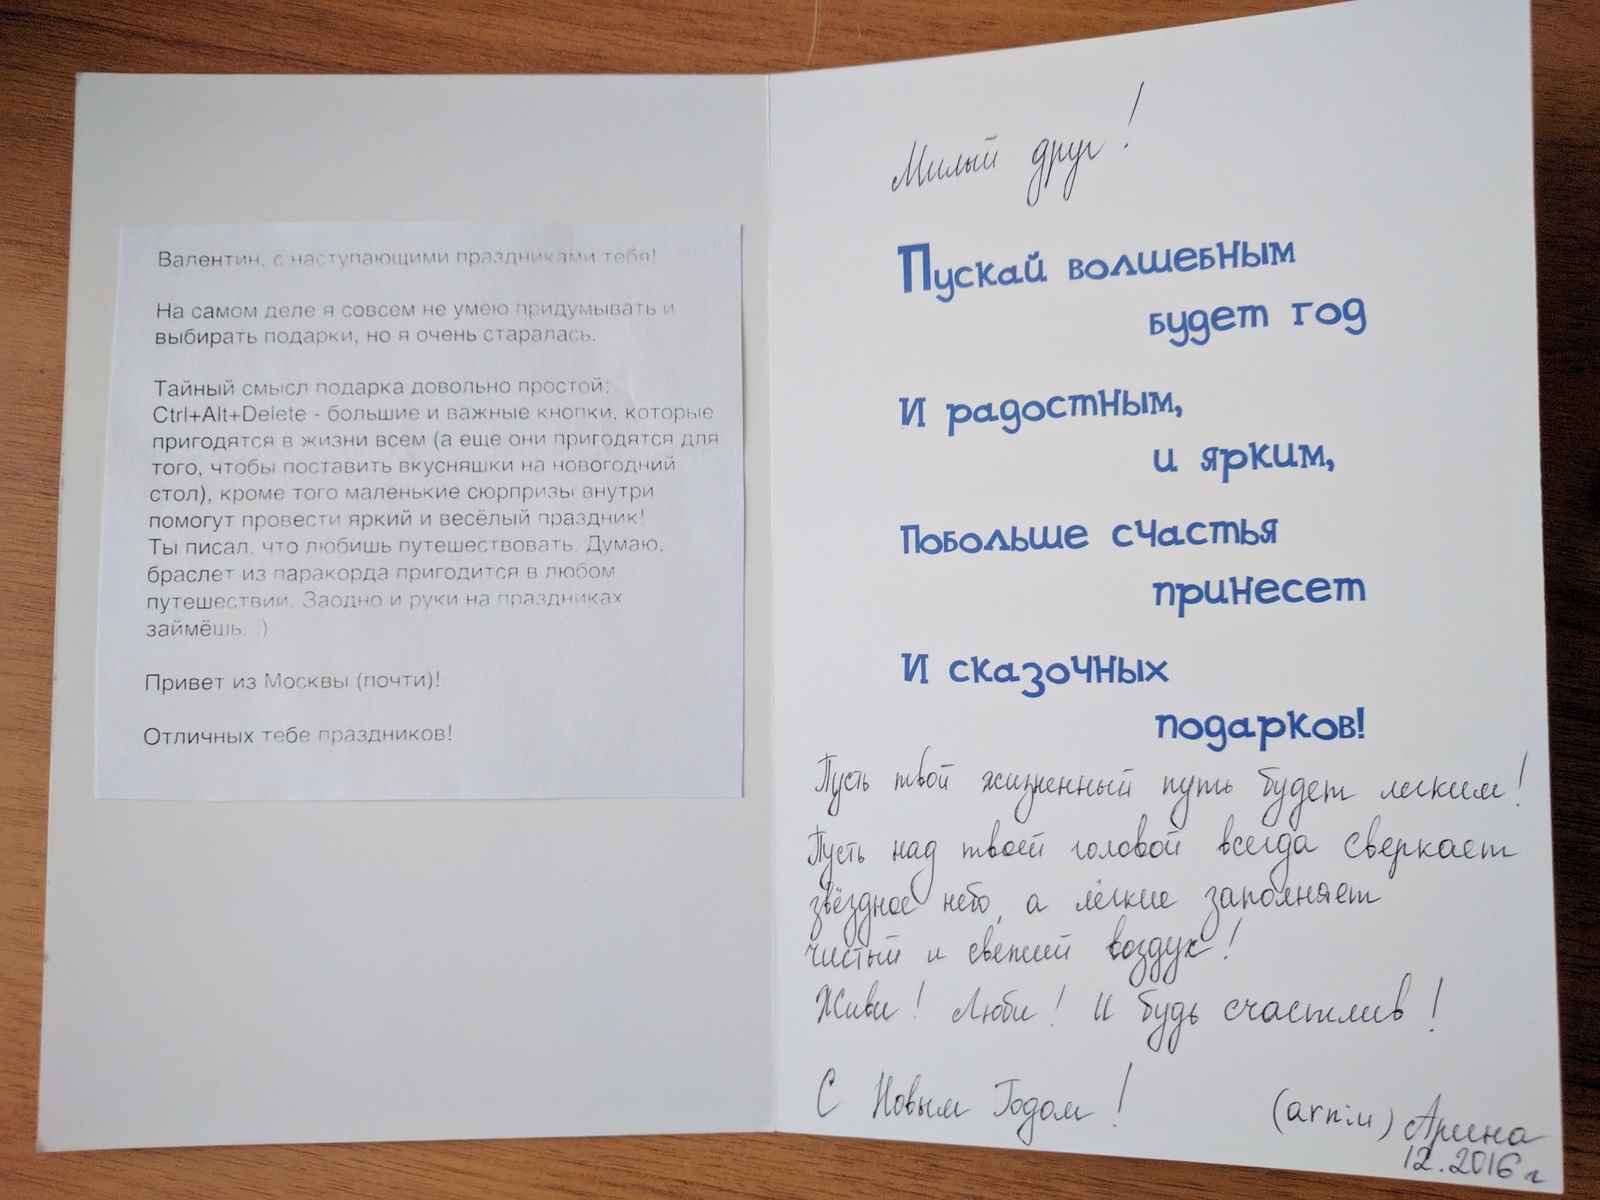 Валентин, с наступающими праздниками тебя!
На самом деле я совсем не умею придумывать и
выбирать подарки, но я очень старалась.
Тайный смысл подарка довольно простой:
Ctrl+Alt+Delete - большие и важные кнопки, которые
пригодятся в жизни всем (а еще они пригодятся для
того, чтобы поставить вкусняшки на новогодний
стол), кроме того маленькие сюрпризы внутри
помогут провести яркий и весёлый праздник!
Ты писал, что любишь путешествовать. Думаю,
браслет из паракорда пригодится в любом
путешествии. Заодно и руки на праздниках
займёшь. :)
Привет из Москвы (почти)!
Отличных тебе праздников!
Милый друг!
Пускай волшебным
будет год
И радостным,
и ярким,
Побольше счастья
принесет
И сказочных
подарков!
Пусть твой жизненный путь будет легким!
Пусть над твоей головой всегда сверкает
звёздное небо, а лёгкие заполняет
чистый и свежий воздух!
Живи! Люби! И будь счастлив!
С Новым Годом!
(arniu) Арина
12.2016 г